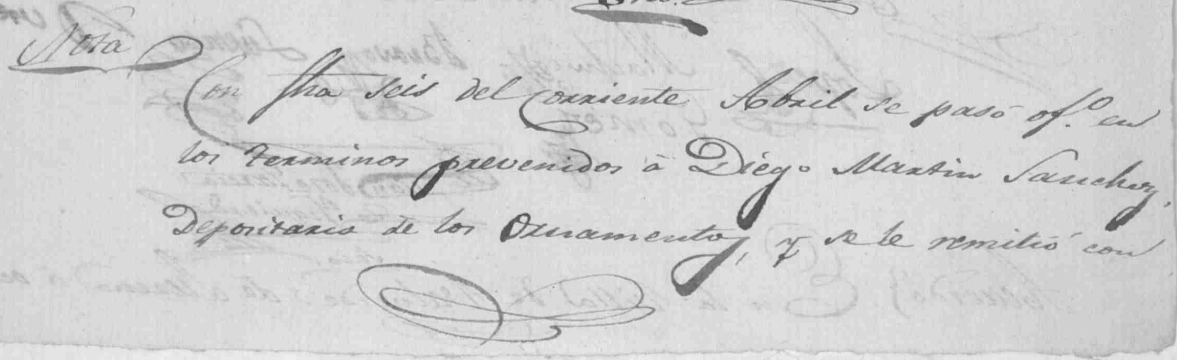 Nota
Con fha seis del corriente Abril se pasó of.º en
los terminos prevenidos à Diego Martin Sanchez,
Depositario de los Ornamentos, y se le remitió con